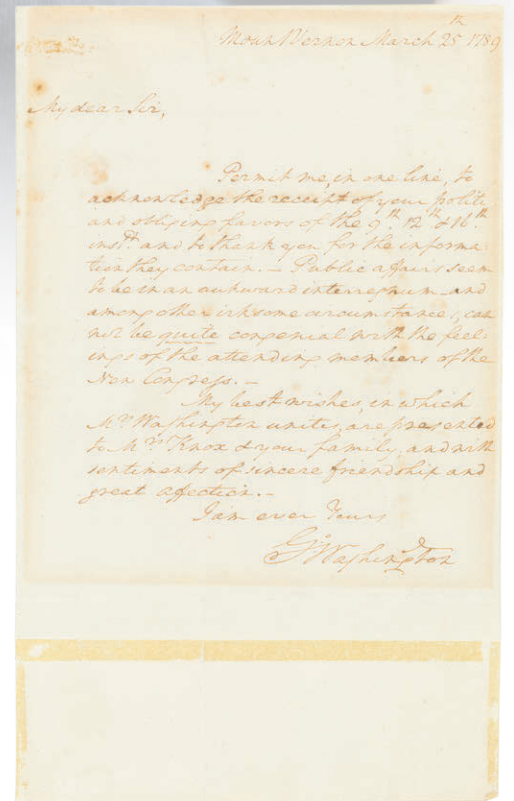 Mount Vernon March 25th 1789
My dear Sir,
Permit me, in one line, to
acknowledge the receipt of your polite
and obliging favors of the 9th 12th & 16th
instt. and to thank you for the informa-
tion they contain. — Public affairs seem
to be in an aukward interregnum and
among other irksome circumstances, can
not be quite congenial with the feel-
ings of the attending members of the
New Congress. —
My best wishes, in which
Mrs Washington unites, are presented
to Mrs Knox & your family, and with
sentiments of sincere friendship and
great affection. —
I am ever Yours
Go: Washington